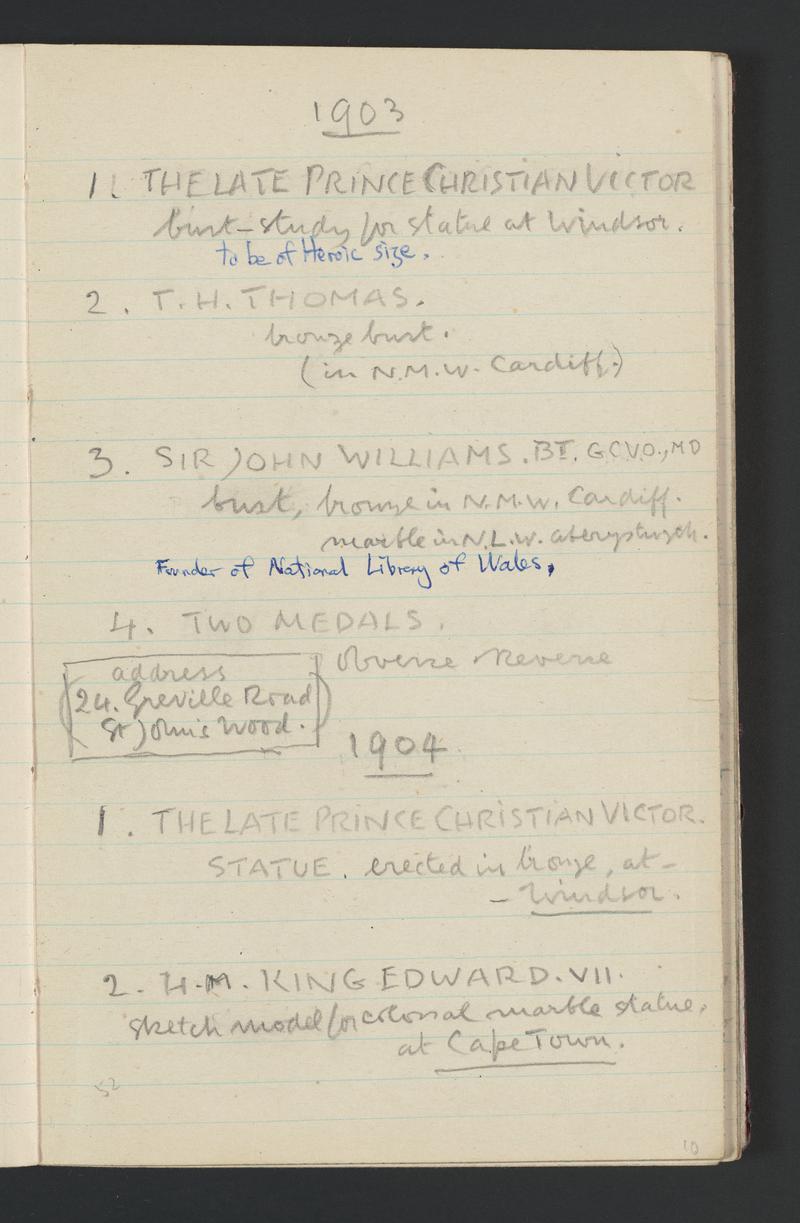 1903
1. THE LATE PRINCE CHRISTIAN VICTOR
bust-study for statue at Windsor.
to be of Heroic size.
2. T. H. THOMAS.
bronze bust.
(in N.M.W. Cardiff.)
3. SIR JOHN WILLIAMS. BT. G.C.V.O., MD
bust, bronze in N.M.W. Cardiff.
marble in N.L.W. aberystwyth.
Founder of National Library of Wales.
4. TWO MEDALS.
Obverse Reverse
address
24. Greville Road
St John's Wood.
1904
1. THE LATE PRINCE CHRISTIAN VICTOR.
STATUE. erected in bronze, at-
- Windsor.
2. H.M. KING EDWARD. VII.
sketch model for colossal marble statue,
at Cape Town.
52
10